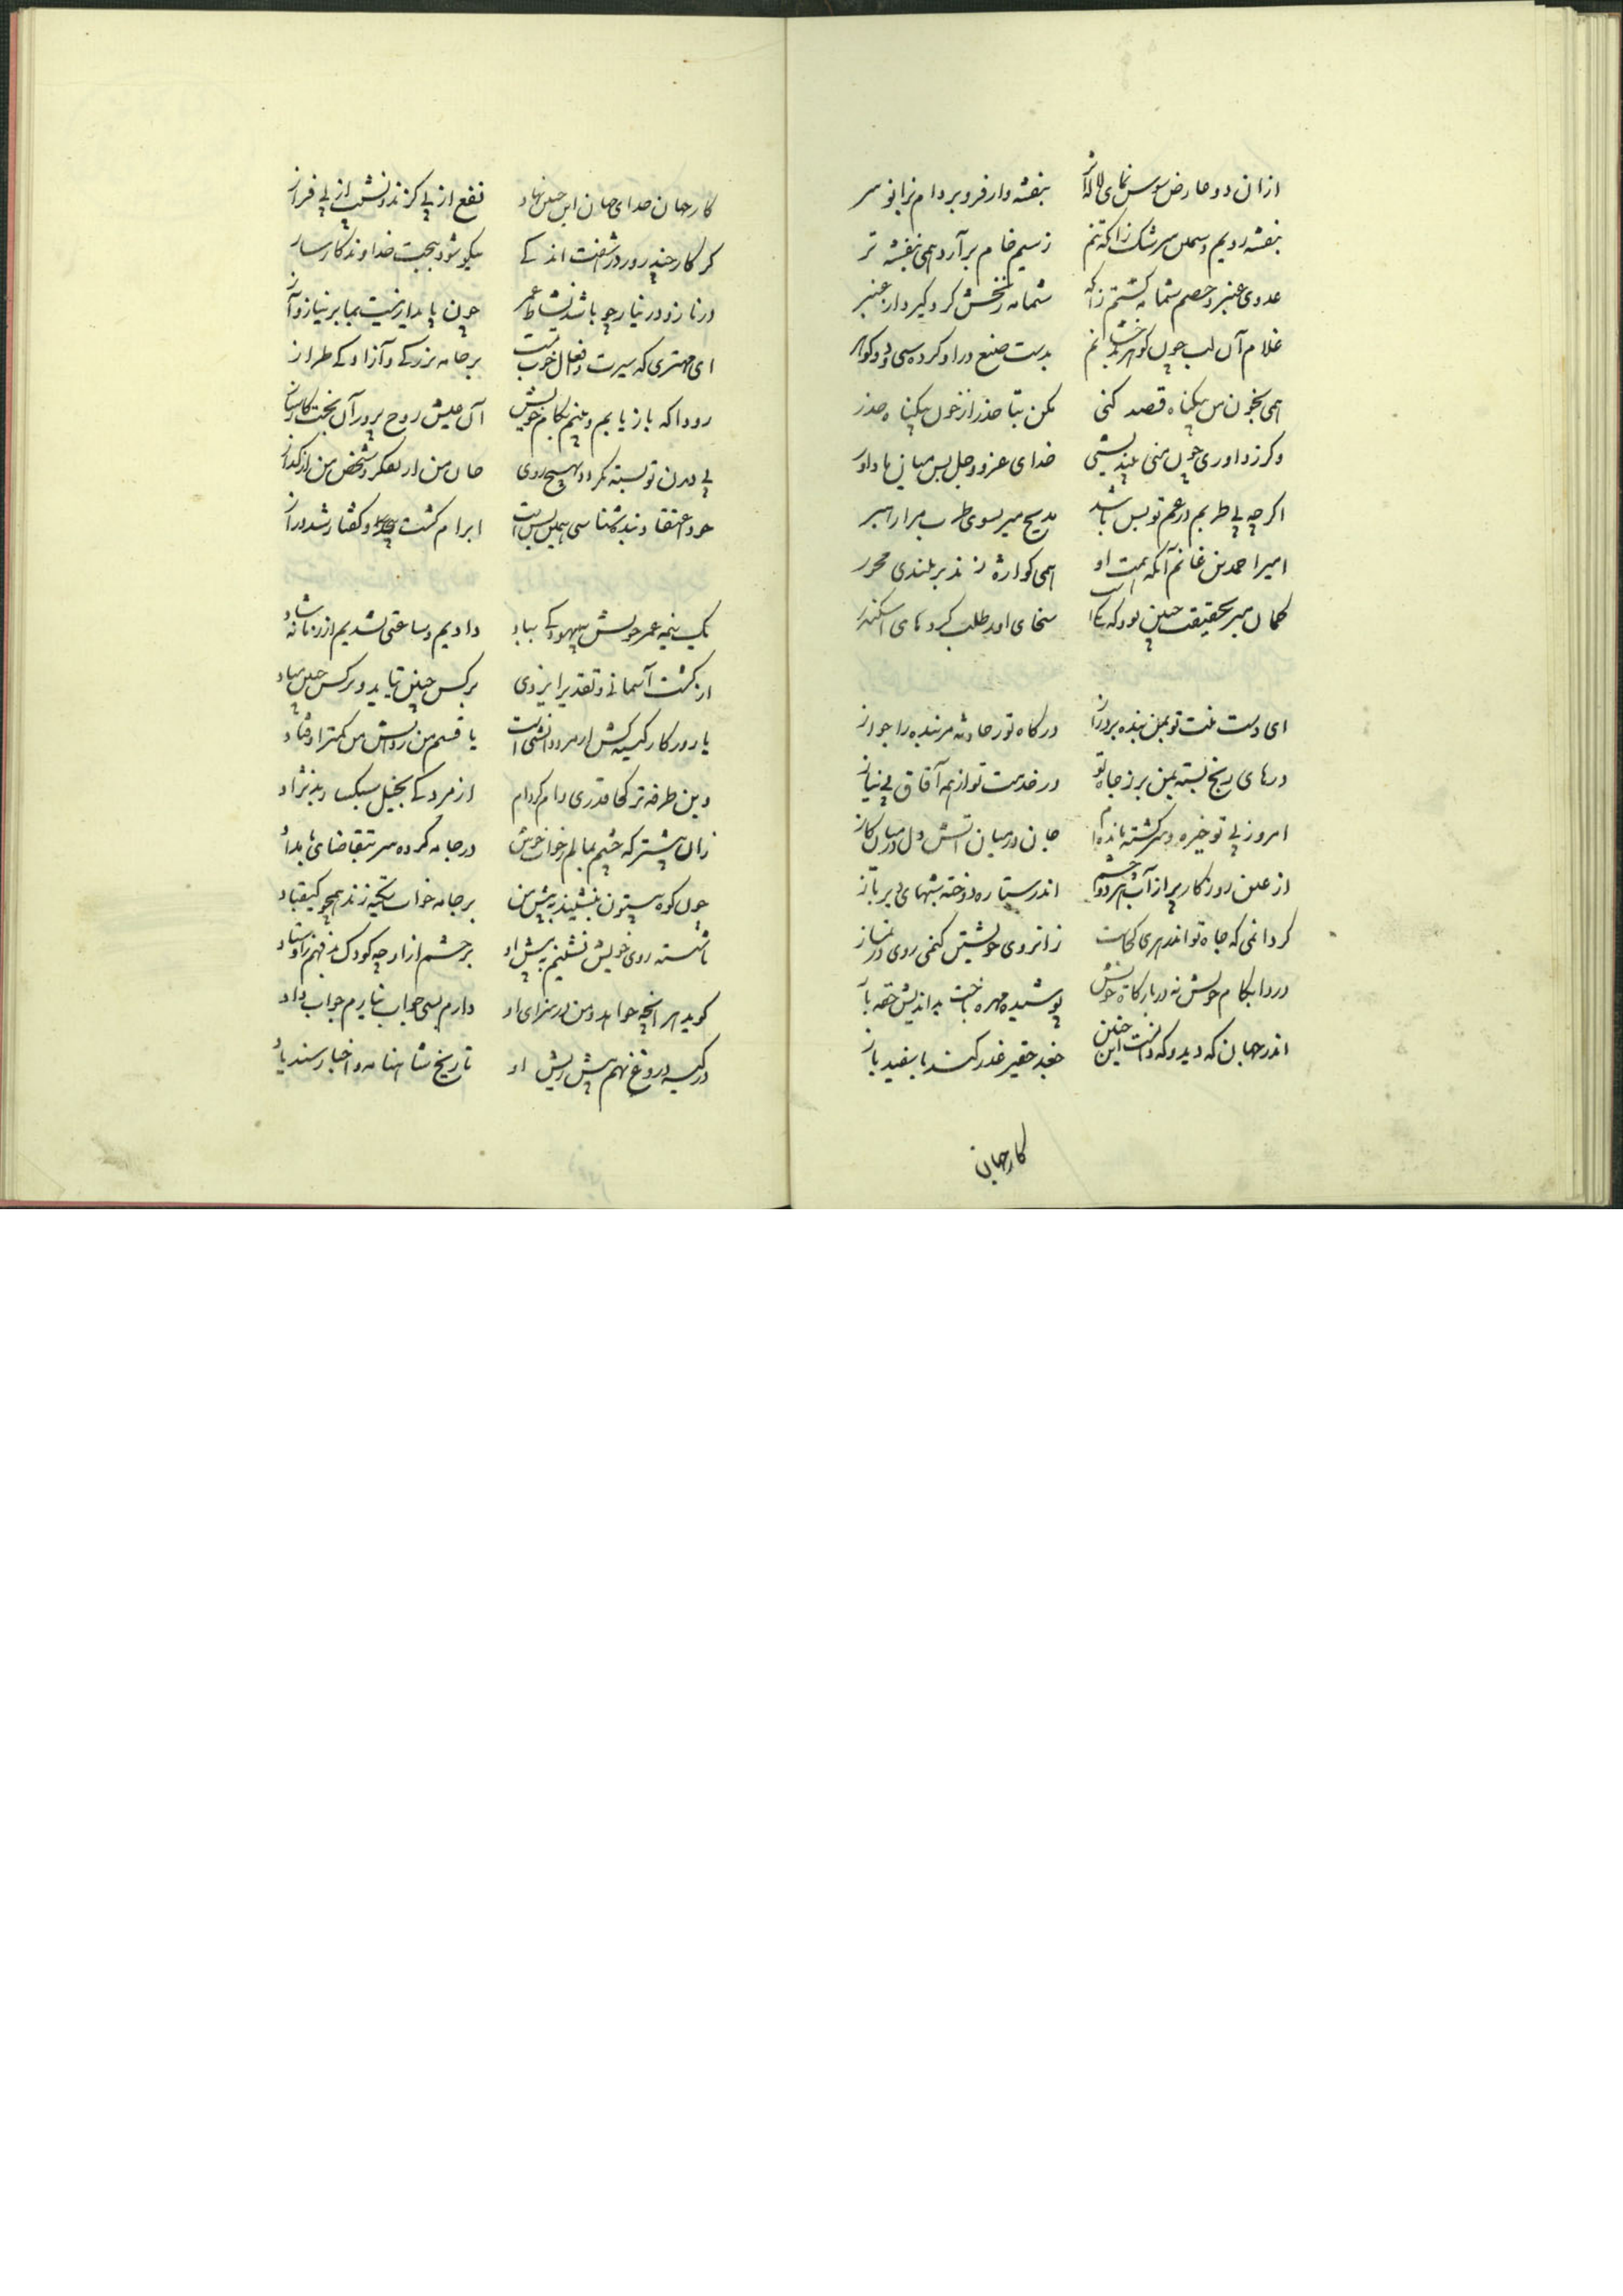 ازان دو عارض سوسن نمای لاله اثر بنفشه وار فرو برده‌ام بزانو سر
بنفشه رویم و سیمین سرشک زانکه تنم ز سیم خام برآرد همی بنفشه تر
عدوی عنبر و خصم شمامه گشتم زانکه شمامه زنخش کرد گیر دار عنبر
غلام آن لب چون گوهر بدست صنع در او کرده سی و دو گوهر
همی بخون من بیگناه قصد کنی مکن بتا حذر از خون بیگناه حذر
وگر ز داوری چون منی نیندیشی خدای عز و جل بس میان ما داور
اگر چه بی طربم در غم تو بس باشد مدیح میر بسوی طرب مرا رهبر
امیر احمد بن غانم آنکه همت او همی کواره زند بر بلندی محور
کمال میر بحقیقت چنین بود که سخای او طلب کرد های اسکندر
ای دست منت تو بمن بنده بر دراز درگاه تو ز حادثه مر بنده را جواز
درهای رنج بسته بمن بر ز جاه تو در خدمت تو از همه آفاق بی نیاز
امروز بی تو خیره و سرگشته مانده‌ام جان در میان آتش و دل در میان گاز
از عین روزگار پر از آب هر دو چشم اندر ستاره دوخته شبهای دیر باز
گر دانمی که جاه تو اندهری کجاست زانروی خویشتن کنمی روی در نماز
دردا بکام خویش نه در بارگاه خویش پوشیده مهره باخت بد اندیش حقه باز
اندر جهان که دید و که دانست این چنین جغد حقیر غدر کند با سفید باز
کار جهان
کار جهان خدای جهان این چنین نهاد نفع از پی گزند و نشیب از پی فراز
گر کار چند روز در شفت اندکی نیکو شود ببخت خداوند کارساز
در ناز و در نیاز چو باشد نشاط عمر چون پایدار نیست بما بر نیاز و آز
ای مهتری که سیرت و فعال خوب تست بر جامه بزرگی و آزادگی طراز
رودا که باز یابم و بینم بکام خویش آن عیش روح پرور آن بخت کارساز
بی دیدن تو بسته نگردد بهیچ روی جان من از تفکر و شخص من از گداز
خود اعتقاد بنده شناسی همین بس است ابرام گشت و گفتار شد دراز
یک نیمه عمر خویش ببیهودگی بباد دادیم و ساعتی نشدیم از زمانه شاد
از گشت آسمانی و تقدیر ایزدی بر کس چنین نیاید و بر کس چنین مباد
یا روزگار کینه کش از مرد دانشی است یا قسم من ز دانش من کمتر اوفتاد
وین طرفه تر کجا قدری وام کرده‌ام از مردکی بخیل سبک ریش بد نژاد
زان پیشتر که چشم بمالم ز خواب خوش در جامه کرده سر بتقاضای بامداد
چون کوه بیستون بنشیند به پیش من بر جامه خواب تکیه زند همچو کیقباد
ناشسته روی خویش نشینم به پیش او برجسته از او چه کودک بد فهم ز اوستاد
گوید هر آنچه خواهد و من در سزای او دارم بسی جواب نیارم جواب داد
در کیسه دروغ نهم پیش ریش او تاریخ شاهنامه و اخبار سندباد